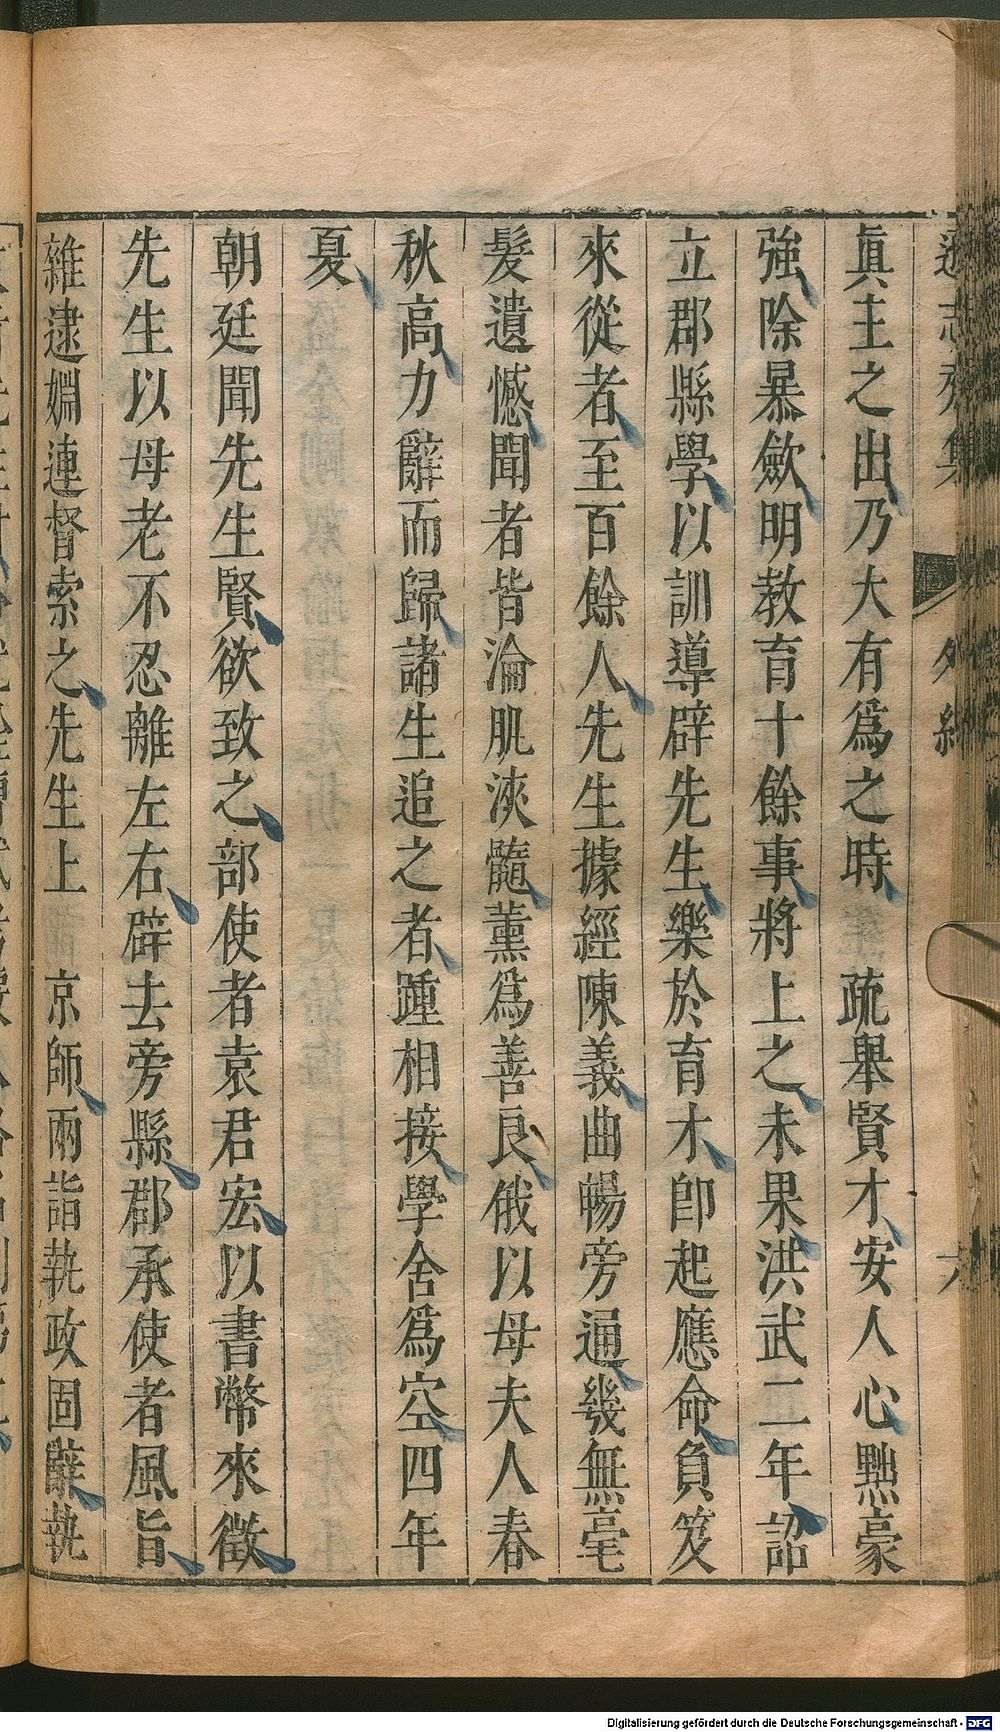 眞主之出乃大有爲之時 疏舉賢才安人心黜豪
強除暴斂明教育十餘事將上之未果洪武二年詔
立郡縣學以訓導辟先生樂於育才卽起應命負笈
來從者至百餘人先生據經陳義曲暢旁通幾無毫
髮遺憾聞者皆淪肌浹髓薰爲善良俄以母夫人春
秋高力辭而歸諸生追之者踵相接學舍爲空四年
夏
朝廷聞先生賢欲致之部使者袁君宏以書幣來徵
先生以母老不忍離左右辟去旁縣郡承使者風旨
雜逮姻連督索之先生上 京師兩詣執政固辭執
外紀
六
Digitalisierung gefördert durch die Deutsche Forschungsgemeinschaft - DFG